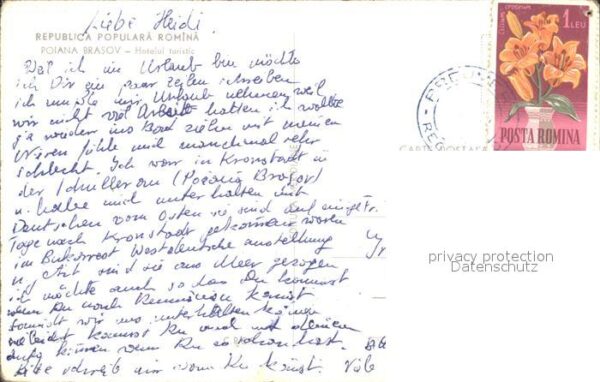 Liebe Heidi.
REPUBLICA POPULARĂ ROMÎNĂ
POIANA BRAȘOV – Hotelul turistic
Da ich im Urlaub bin möchte
ich Dir ein paar Zeilen schreiben
ich mußte mir Urlaub nehmen, weil
wir nicht viel Arbeit hatten ich wollte
ja wieder ins Bad ziehen mit meinen
Nieren fühle mich manchmal sehr
schlecht. Ich war in Kronstadt u
der Schullerau (Poiana Brașov)
u. habe mich unterhalten mit
Deutschen vom Osten sie sind auf einige
Tage nach Kronstadt gekommen waren
in Bukarest Westdeutsche Austellung
u. jetzt sind sie ans Meer gezogen
ich möchte auch so das Du kommst
wenn Du nach Rumänien kommst
damit wir uns unterhalten können
vieleicht kommst Du und mit deinem
kommen wenn Du
Bitte schreib mir wann Du kommst. Viele
1 LEU
POSTA ROMINA
CARTE POSTALĂ
privacy protection
Datenschutz